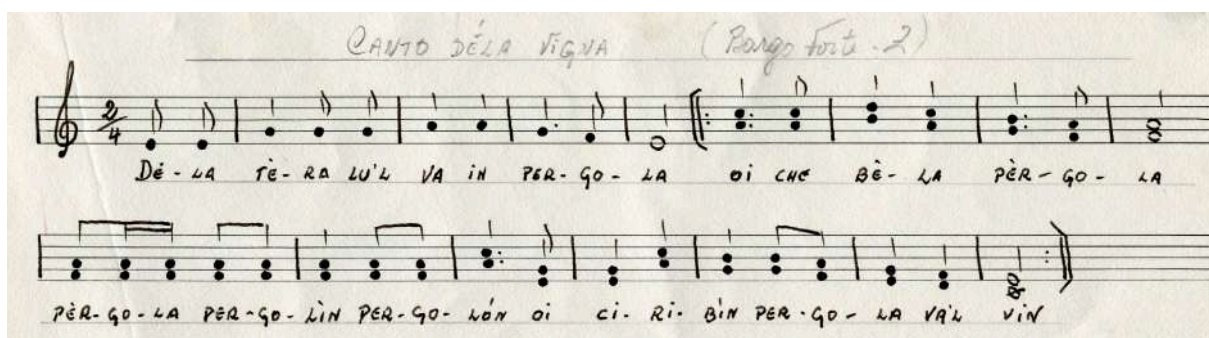 CANTO DÉLA VIGNA (Borgo Forte - 2)
2/4
DÉ - LA TÈ - RA LU'L VA IN PER - GO - LA OI CHE BÈ - LA PÈR - GO - LA
PÈR - GO - LA PER - GO - LÌN PER - GO - LÓN OI CI - RI - BÌN PER - GO - LA VA'L VIN